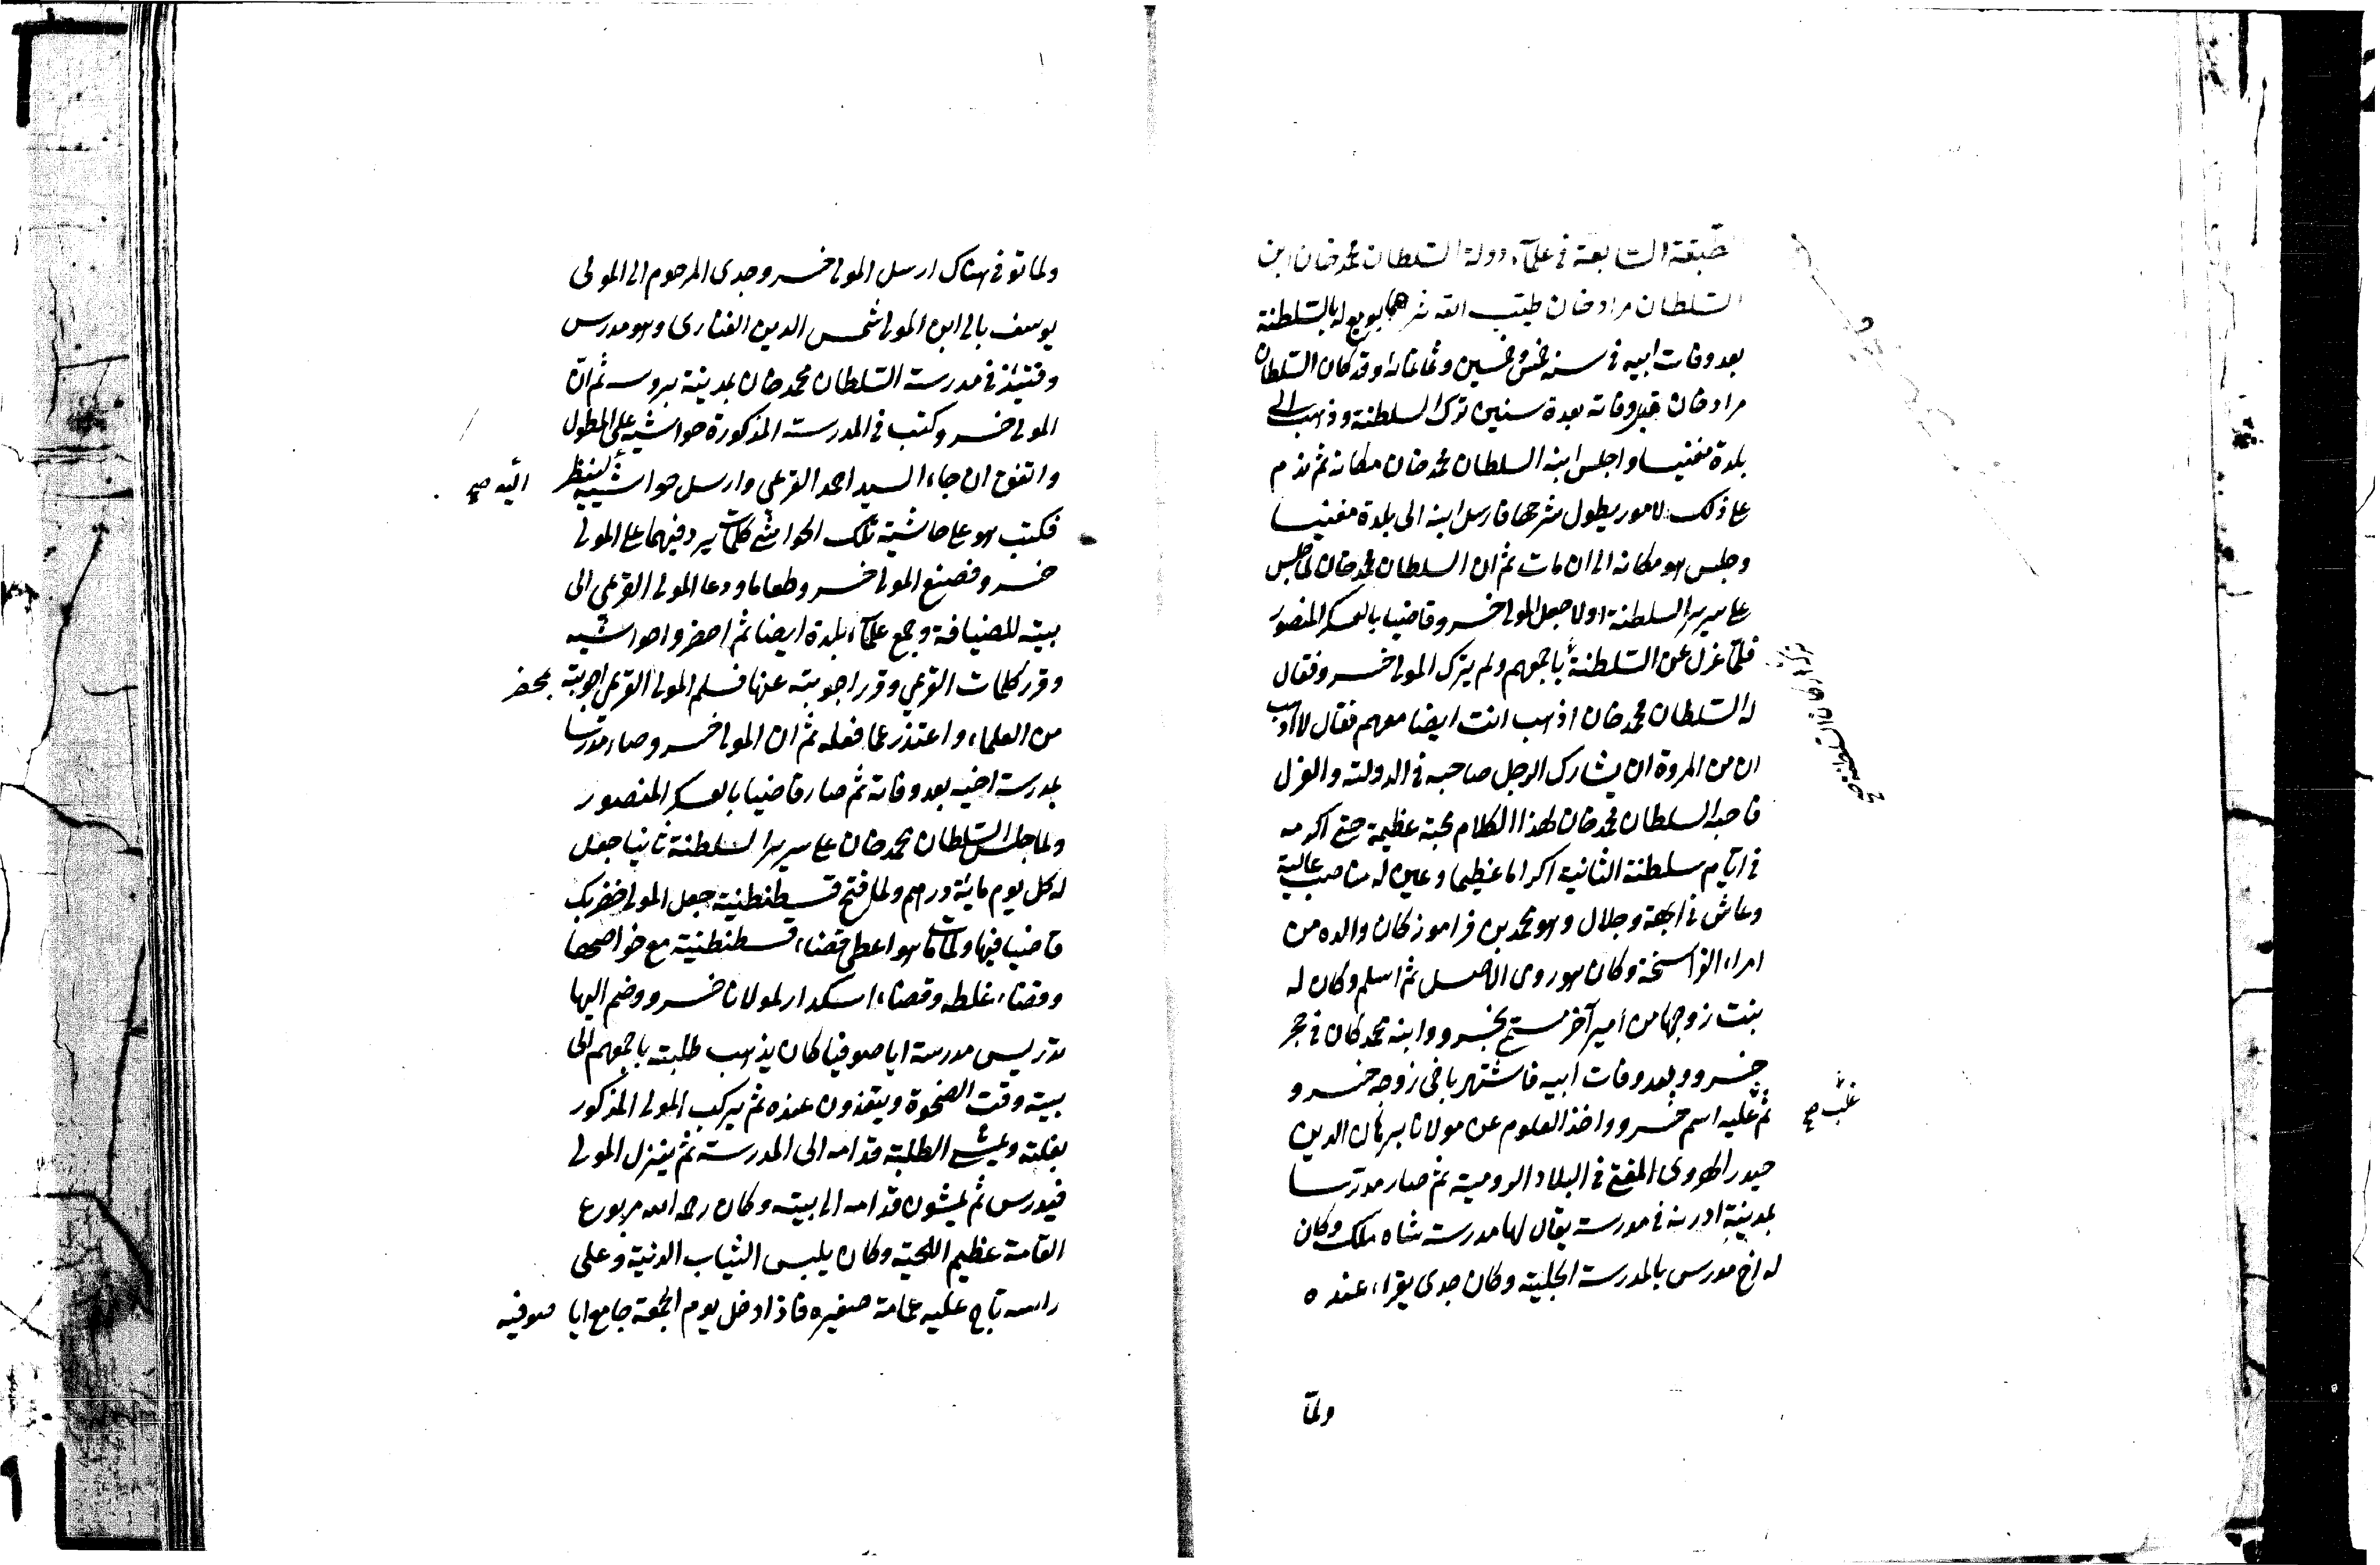 الطبقة السابعة في علماء دولة السلطان محمد خان ابن
السلطان مراد خان طيب الله ثرهما بويع له بالسلطنة
بعد وفات ابيه في سنة خمس وخمسين وثمانمائة وقد كان السلطان
مراد خان قبل وفاته بعدة سنين ترك السلطنة وذهب الى
بلدة مغنيسا واجلس ابنه السلطان محمد خان مكانه ثم ندم
على ذلك لامور يطول شرحها فارسل ابنه الى بلدة مغنيسا
وجلس هو مكانه الى ان مات ثم ان السلطان محمد خان لما جلس
على سرير السلطنة اولا جعل المولى خسرو قاضيا بالعسكر المنصور
فلما عزل عن السلطنة باجمعهم ولم يترك المولى خسرو فقال
له السلطان محمد خان اذهب انت ايضا معهم فقال لا اذهب
ان من المروة ان يشارك الرجل صاحبه في الدولة والعزل
فاحبه السلطان محمد خان لهذا الكلام محبة عظيمة حتى اكرمه
في ايام سلطنة الثانية اكراما عظيما وعين له مناصب عالية
وعاش في ابهة وجلال وهو محمد بن فراموز كان والده من
امراء الفراسخة وكان هو رومى الاصل ثم اسلم وكان له
بنت زوجها من امير آخر مسمى بخسرو وابنه محمد كان في حجر
خسرو وبعد وفات ابيه فاشتهر باخى زوجه خسرو
ثم عليه اسم خسرو واخذ العلوم عن مولانا برهان الدين
غلب صح
حيدر الهروى المفتى في البلاد الرومية ثم صار مدرسا
بمدينة ادرنه في مدرسة يقال لها مدرسة شاه ملك وكان
له اخ مدرس بالمدرسة الحلبية وكان جدى يقراء عنده
ولما
ولما توفى هناك ارسل المولى خسرو جدى المرحوم الى المولى
يوسف بالى ابن المولى شمس الدين الفنارى وهو مدرس
وقتئذ في مدرسة السلطان محمد خان بمدينة بروسه ثم ان
المولى خسرو كتب في المدرسة المذكورة حواشيه على المطول
واتفق ان جاء السيد احمد القرمى وارسل حواشيه لينظر
اليه صح
فكتب هو على حاشية تلك الحواشى كلمات يرد فيهما على المولى
خسرو فصنع المولى خسرو طعاما ودعا المولى القرمى الى
بيته للضيافة وجمع علماء بلدة ايضا ثم احضر واحواشيه
وقرر كلمات القرمى وقرر اجوبته عنها فسلم المولى القرمى اجوبته بمحضر
من العلماء واعتذر عما فعله ثم ان المولى خسرو صار مدرسا
بمدرسة اخيه بعد وفاته ثم صار قاضيا بالعسكر المنصور
ولما جلس السلطان محمد خان على سرير السلطنة ثانيا جعل
له كل يوم مائة درهم ولما فتح قسطنطنية جعل المولى خضر بك
قاضيا فيها ولما مات هو اعطى قضاء قسطنطنية مع خواصها
وقضاء غلطه وقضاء اسكدار لمولانا خسرو وضم اليها
تدريس مدرسة ايا صوفيا كان يذهب طلبته باجمعهم الى
بيته وقت الضحوة ويتغدون عنده ثم يركب المولى المذكور
بغلته ويمشى الطلبة قدامه الى المدرسة ثم ينزل المولى
فيدرس ثم يمشون قدامه الى بيته وكان رحمه الله مربوع
القامة عظيم اللحية وكان يلبس الثياب الدنية وعلى
راسه تاج عليه عمامة صغيره فاذا دخل يوم الجمعة جامع ايا صوفيه